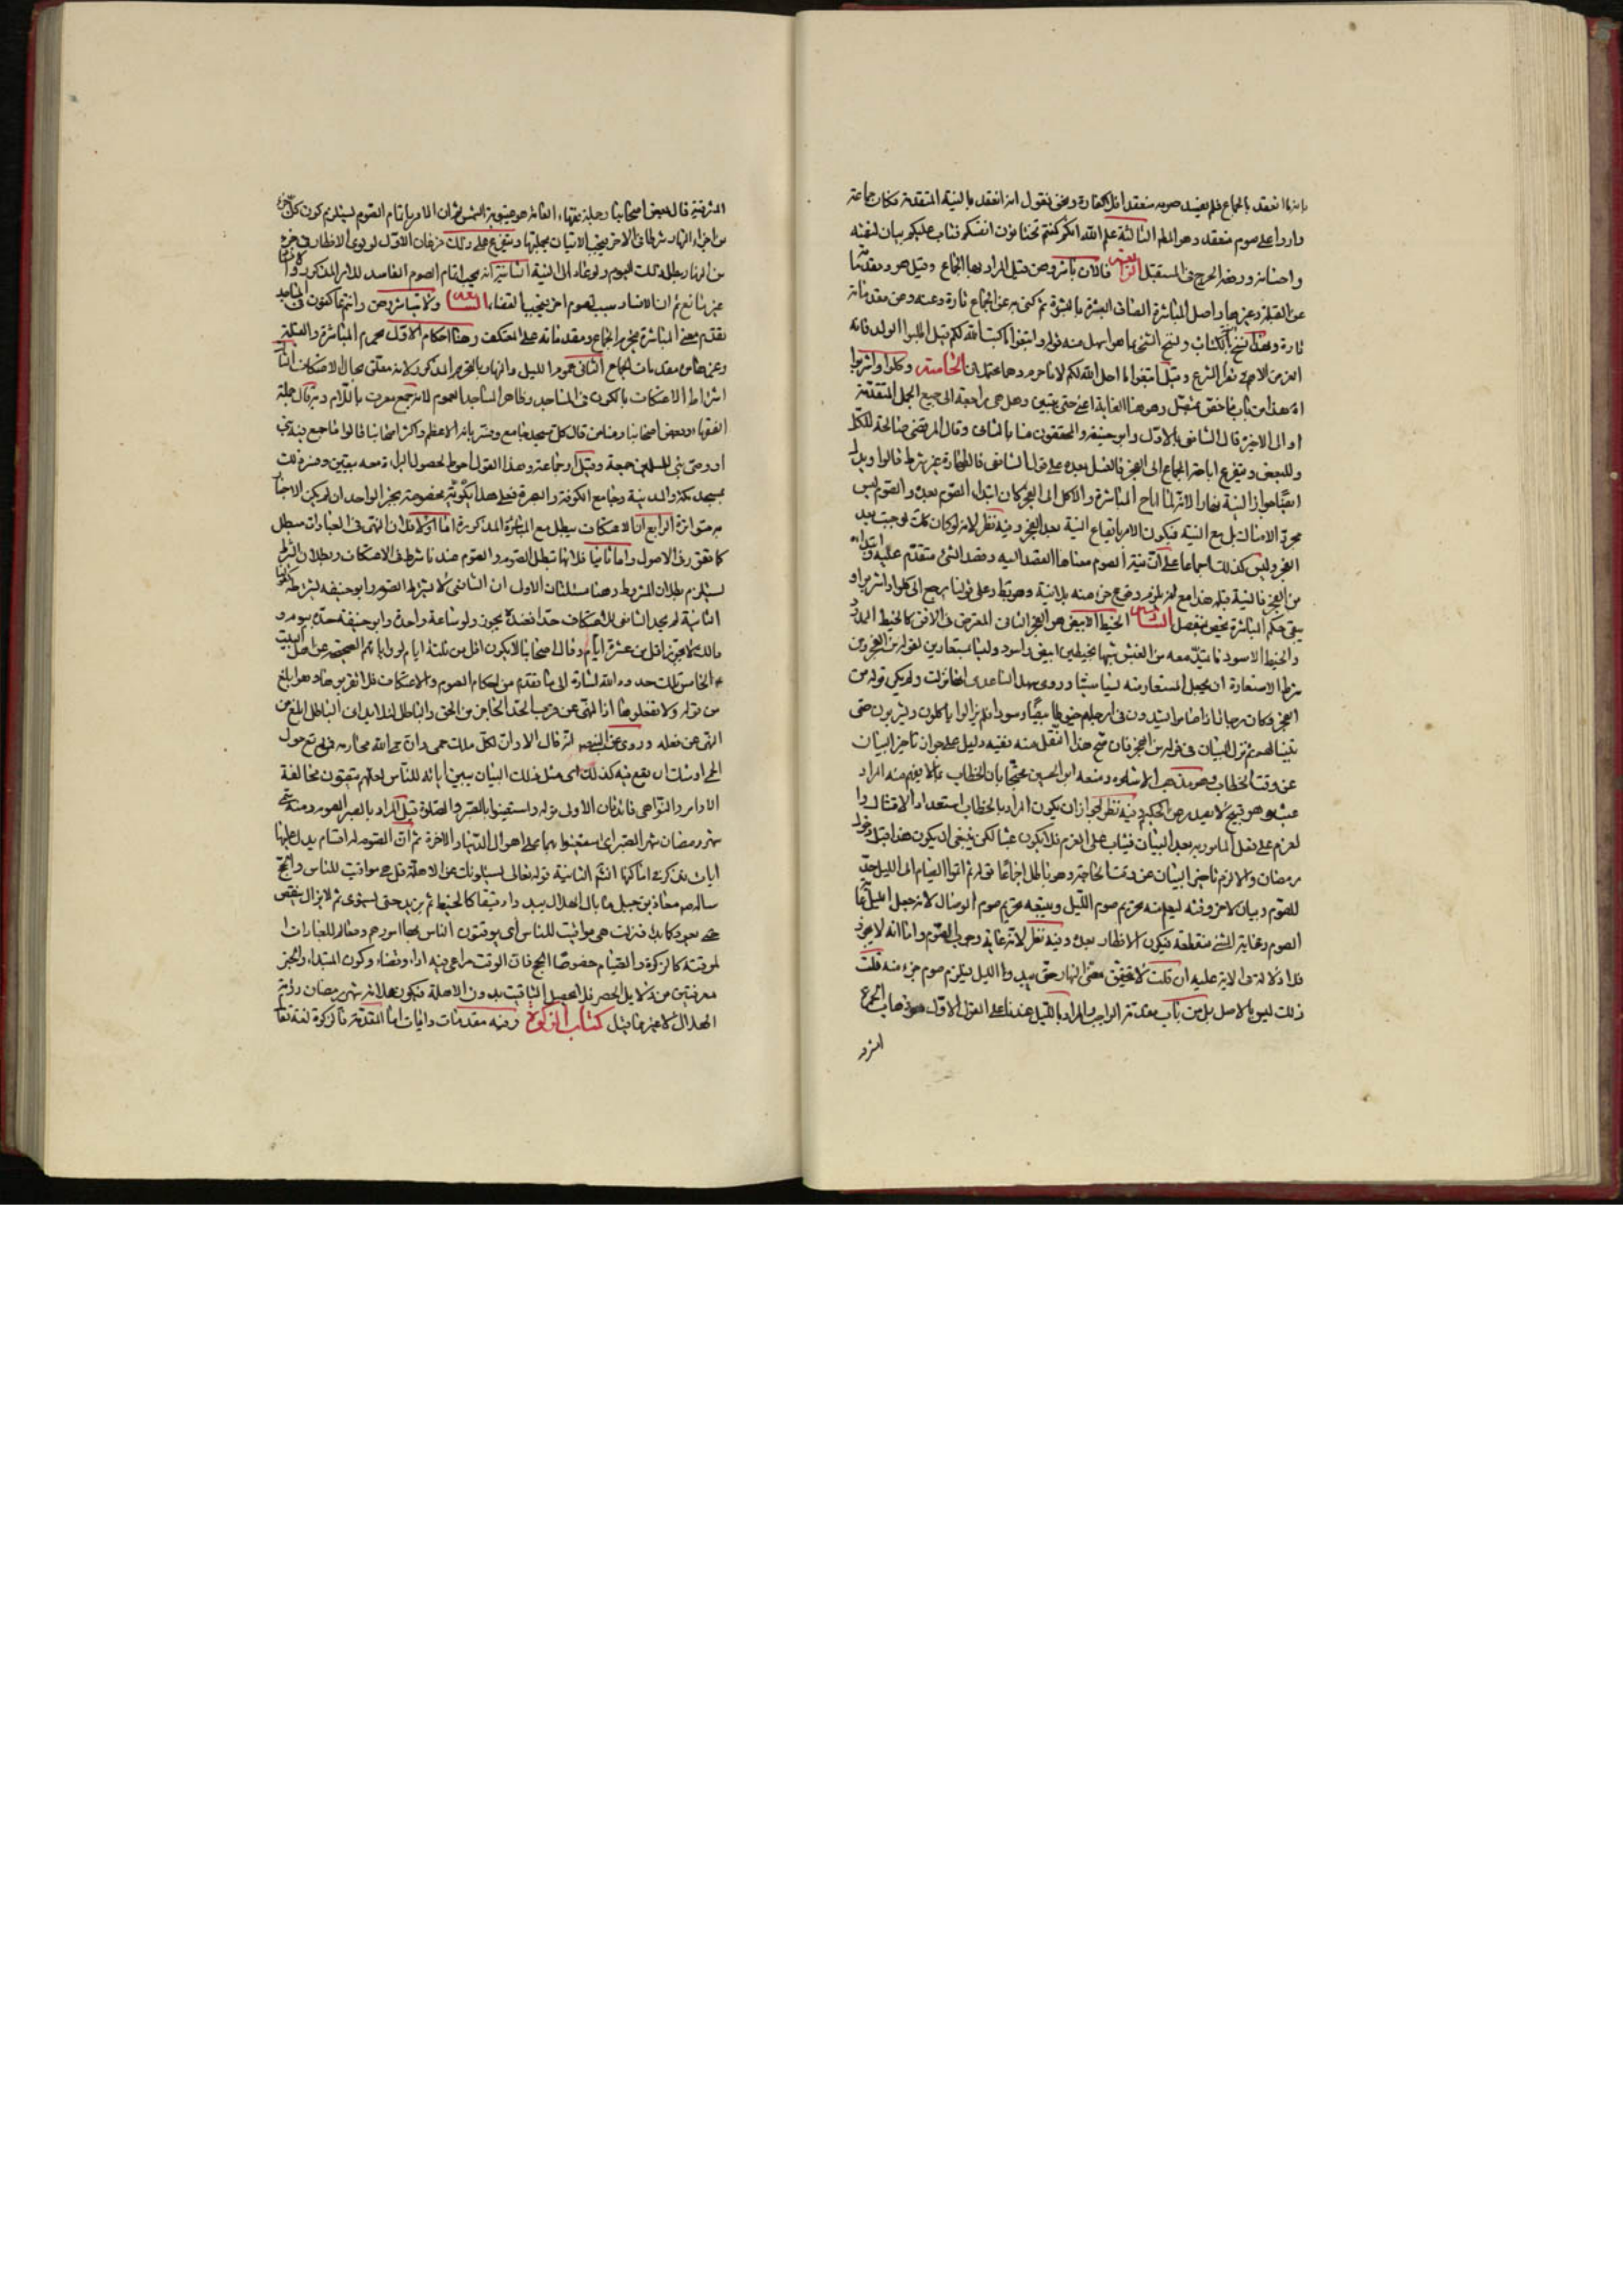 بانه ما انعقد بالجماع فلم يفسد صومه منعقد افلا كفارة ونحن نقول انه انعقد بالنية المتقدمة فكان جماعه
واردا على صوم منعقد وهو المط الثالثة علم الله انكم كنتم تختانون انفسكم فتاب عليكم بيان لمنته
واحسانه ورفع الحرج في المستقبل الرابعة فالآن باشروهن قيل المراد بها الجماع وقيل هو ومقدماته
عن القبلة وغيرها واصل المباشرة الصاق البشرة بالبشرة ثم كنى به عن الجماع تارة وعنه وعن مقدماته
تارة وهذا نسخ بالكتاب ونسخ الشيء بما هو اسهل منه قوله وابتغوا ما كتب الله لكم قيل اطلبوا الولد فانه
الغرض الاهم في نظر الشرع وقيل ابتغوا ما احل الله لكم لا ما حرم وهما محتملان الخامسة وكلوا واشربوا
ان هذا من باب ما خفف بمتصل وهو هنا الغاية اعني حتى يتبين وهل هي راجعة الى جميع الجمل المتقدمة
او الى الاخيرة قال الشافعي بالاول وابو حنيفة والمحققون منا بالثاني وقال المرتضى صالحة للكل
وللبعض ويتفرع اباحة الجماع الى الفجر فالغسل بعده على قول الشافعي فالطهارة غير شرط قالوا ويدل
ايضا جواز النية نهارا لانه لما اباح المباشرة والاكل الى الفجر كان ابتداء الصوم بعده والصوم ليس
مجرد الامساك بل مع النية فيكون الامر بايقاع النية بعد الفجر وفيه نظر لانه لو كان كذلك لوجبت بعد
الفجر وليس كذلك اجماعا على ان نية الصوم معناها القصد اليه وقصد الشيء متقدم عليه وابتداؤه
من الفجر فالنية قبله هذا مع لزوم وقوع جزء منه بلا نية وهو بط وعلى قولنا يرجع الى كلوا واشربوا و
يبقى حكم المباشرة بمخصص منفصل السادسة الخيط الابيض هو الفجر الثاني المعترض في الافق كالخيط الممدود
والخيط الاسود ما يمتد معه من الغبش شبها بخيطين ابيض واسود وليسا مستعارين لقوله من الفجر ومن
شرط الاستعارة ان يجعل المستعار منه نسيا منسيا وروى سهل الساعدي انها نزلت ولم يكن قوله من
الفجر فكان رجال اذا صاموا يشدون في ارجلهم خيوطا بيضا وسودا فلم يزالوا ياكلون ويشربون حتى
يتبينا لهم ثم نزل البيان في قوله من الفجر فان صح هذا النقل منه ففيه دليل على جواز تاخير البيان
عن وقت الخطاب وهو مذهب الاشاعرة ومنعه ابو الحسين محتجا بان الخطاب بما لا يفهم منه المراد
عبث وهو قبيح لا يصدر عن الحكيم وفيه نظر لجواز ان يكون المراد بالخطاب استعداد الامتثال وا
لعزم على فعل المامور به بعد البيان فيثاب على العزم فلا يكون عبثا لكن ينبغي ان يكون هذا قبل دخول
رمضان والا لزم تاخير البيان عن وقت الحاجة وهو باطل اجماعا قوله ثم اتموا الصيام الى الليل حد
للصوم وبيان لاخر وقته ليعلم منه تحريم صوم الليل ويتبعه تحريم صوم الوصال لانه جعل الليل غاية
الصوم وغاية الشيء منقطعة فيكون الافطار بعده وفيه نظر لانه غاية وجوب الصوم واما انه لا يجوز
فلا دلالة في الاية عليه ان قلت لا تحقق مضي النهار حتى يبدوا الليل فيلزم صوم جزء منه قلت
ذلك ليس بالاصل بل من باب مقدمة الواجب والمراد بالليل عندنا على القول الاول هو ذهاب الحمرة
المشرقية
المشرقية قال بعض اصحابنا وجملة فقهاء العامة هو غيبوبة الشمس ثم ان الامر باتمام الصوم يستلزم كون كل جزء
من اجزاء النهار شرطا في الاخر فيجب الاتيان بجملتها ويتفرع على ذلك فرعان الاول لو نوى الافطار في جزء
من النهار بطل ذلك اليوم ولو عاد الى النية الثانية انه يجب اتمام الصوم الفاسد للامر المذكور ولا
غير مانع ثم ان الافساد سبب لصوم اخر فيجب القضاء السابعة ولا تباشروهن وانتم عاكفون في المساجد
تقدم معنى المباشرة فيحرم الجماع ومقدماته على المعتكف وهنا احكام الاول تحريم المباشرة والقبلة
وغيرهما من مقدمات الجماع الثاني عموم الليل والنهار بالتحريم المذكور لانه معلق بحال الاعتكاف الثالث
اشتراط الاعتكاف بالكون في المساجد وظاهر المساجد العموم لانه جمع معرف باللام وبه قال جملة
الفقهاء وبعض اصحابنا ومنا من قال كل مسجد جامع وفسر بانه الاعظم واكثر اصحابنا قالوا ما جمع فيه نبي
او وصي نبي بالمسلمين جمعة وقيل او جماعة وهذا القول احوط لحصول البراءة معه بيقين وفسر ذلك
بمسجد مكة والمدينة وجامع الكوفة والبصرة فعلى هذا يكون الاية مخصوصة بخبر الواحد ان لم يكن الاخبار
به متواترة الرابع ان الاعتكاف يبطل مع المباشرة المذكورة اما اولا فلان النهي في العبادات مبطل
كما تقرر في الاصول واما ثانيا فلانها تبطل الصوم والصوم عندنا شرط في الاعتكاف وبطلان الشرط
يستلزم بطلان المشروط وهنا مسئلتان الاولى ان الشافعي لا يشترط الصوم وابو حنيفه يشترطه كقولنا
الثانية لم يحد الشافعي للاعتكاف حدا فعنده يجوز ولو ساعة واحدة وابو حنيفة حده بيوم و
مالك لا يجوز اقل من عشرة ايام وقال اصحابنا لا يكون اقل من ثلثة ايام لروايات الصحيحة عن اهل البيت
ع الخامس تلك حدود الله اشارة الى ما تقدم من احكام الصوم والاعتكاف فلا تقربوها وهو ابلغ
من قوله ولا تفعلوها اذ النهي عن قرب الحد الحاجز بين الحق والباطل لئلا يدانى الباطل ابلغ من
النهي عن فعله وروى عن النبي صم انه قال الا وان لكل ملك حمى وان حمى الله محارمه فمن رتع حول
الحمى اوشك ان يقع فيه كذلك اى مثل ذلك البيان يبين آياته للناس لعلهم يتقون مخالفة
الاوامر والنواهي فائدتان الاولى قوله واستعينوا بالصبر والصلوة قيل المراد بالصبر الصوم ومنه سمي
شهر رمضان شهر الصبر اى استعينوا بهما على اهوال الدنيا والاخرة ثم ان الصوم له اقسام يدل عليها
ايات نذكرها في اماكنها انشم الثانية قوله تعالى يسئلونك عن الاهلة قل هي مواقيت للناس والحج
ساله صم معاذ بن جبل ما بال الهلال يبدو دقيقا كالخيط ثم يزيد حتى يستوى ثم لا يزال ينقص
حتى يعود كما بدا فنزلت هي مواقيت للناس اى يوقتون الناس بها امورهم ومعالم للعبادات ا
لموقتة كالزكوة والصيام خصوصا الحج فان الوقت مراعى فيه اداء وقضاء وكون المبتداء والخبر
معرفتين من دلايل الحصر فلا يحصل التوقيت بدون الاهلة فيكون علامة شهر رمضان رؤية
الهلال لا غير ما قيل كتاب الزكوة وفيه مقدمات وايات اما المقدمة فالزكوة لغة تقا